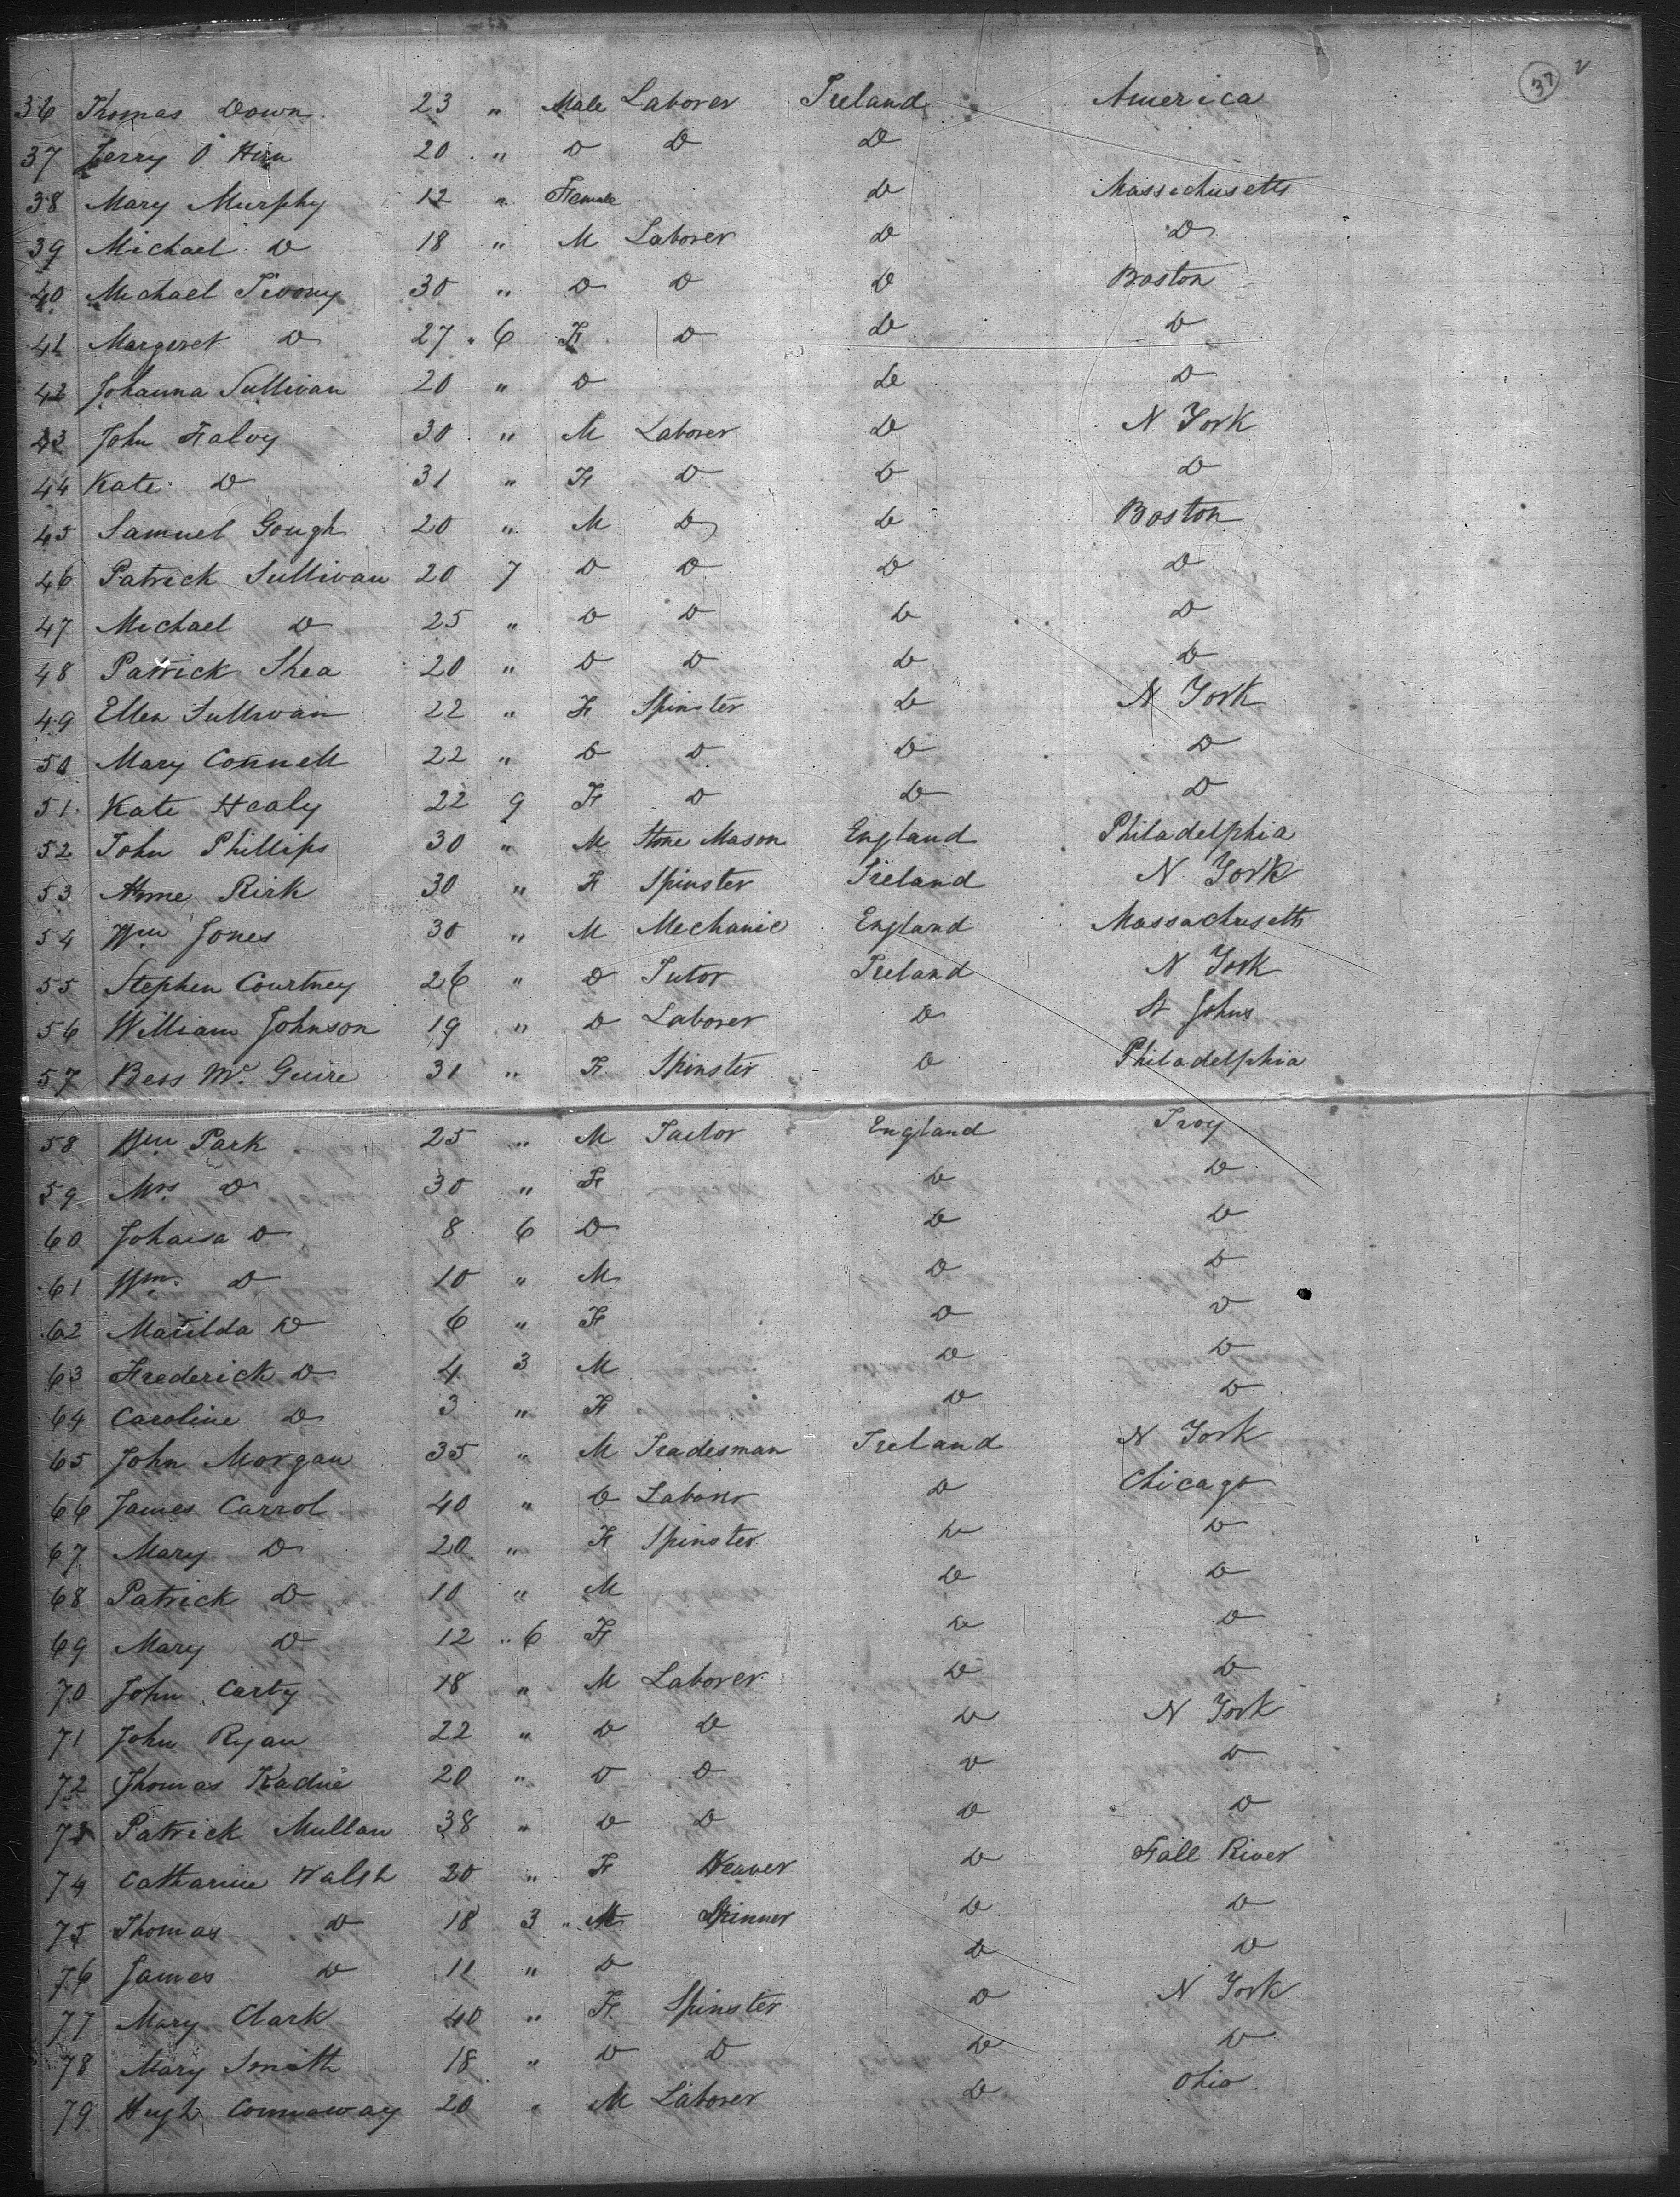 37 v
36 Thomas Down 23 " Male Laborer Ireland America
37 Jerry O'Hern 20 " D D D
38 Mary Murphy 12 " Female D Massachusetts
39 Michael D 18 " M Laborer D D
40 Michael 30 " D D D Boston
41 Margeret D 27 " 6 F D D D
42 Johanna Sullivan 20 " D D D
43 John Falvy 30 " M Laborer D N York
44 Kate D 31 " F D D D
45 Samuel Gough 20 " M D D Boston
46 Patrick Sullivan 20 7 D D D D
47 Michael D 25 " D D D D
48 Patrick Shea 20 " D D D D
49 Ellen Sullivan 22 " F Spinster D N York
50 Mary Connell 22 " D D D D
51 Kate Healy 22 9 F D D D
52 John Phillips 30 " M Stone Mason England Philadelphia
53 Anne Rirk 30 " F Spinster Ireland N York
54 Wm Jones 30 " M Mechanic England Massachusetts
55 Stephen Courtney 26 " D Tutor Ireland N York
56 William Johnson 19 " D Laborer D St Johns
57 Bess Mc Guire 31 " F Spinster D Philadelphia
58 Wm Park 25 " M Tailor England Troy
59 Mrs D 30 " F D D
60 D 8 6 D D D
61 Wm D 10 " M D D
62 Matilda D 6 " F D D
63 Frederick D 4 3 M D D
64 Caroline D 3 " F D D
65 John Morgan 35 " M Tradesman Ireland N York
66 James Carrol 40 " D Laborer D Chicago
67 Mary D 20 " F Spinster D D
68 Patrick D 10 " M D D
69 Mary D 12 " 6 F D D
70 John Carty 18 " M Laborer D D
71 John Ryan 22 " D D D N York
72 Thomas 20 " D D D D
73 Patrick Mullan 38 " D D D D
74 Catharine Walsh 20 " F Weaver D Fall River
75 Thomas D 18 3 " M Spinner D D
76 James D 11 " D D D
77 Mary Clark 40 " F Spinster D N York
78 Mary Smith 18 " D D D D
79 Hugh Connaway 20 " M Laborer D Ohio